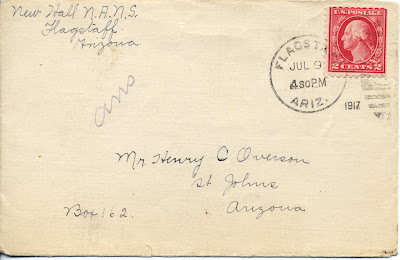 New Hall N.A.N.S.
Flagstaff
Arizona
ans
FLAGSTA
JUL 9
4 30 PM
ARIZ.
1917
U.S. POSTAGE
2 CENTS 2
Mr Henry C Overson
St Johns
Arizona
Box 162.